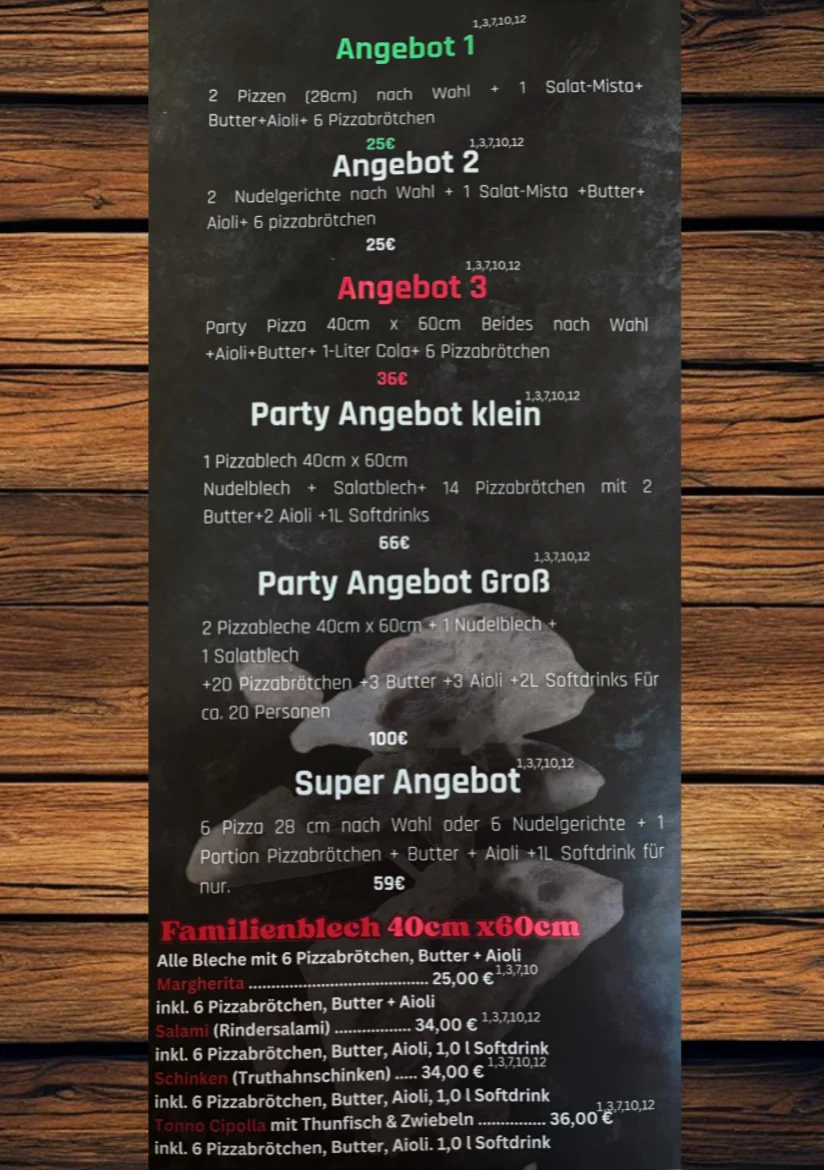 1,3,7,10,12
Angebot 1
2 Pizzen (28cm) nach Wahl + 1 Salat-Mista+
Butter+Aioli+ 6 Pizzabrötchen
25€
1,3,7,10,12
Angebot 2
2 Nudelgerichte nach Wahl + 1 Salat-Mista +Butter+
Aioli+ 6 pizzabrötchen
25€
1,3,7,10,12
Angebot 3
Party Pizza 40cm x 60cm Beides nach Wahl
+Aioli+Butter+ 1-Liter Cola+ 6 Pizzabrötchen
36€
1,3,7,10,12
Party Angebot klein
1 Pizzablech 40cm x 60cm
Nudelblech + Salatblech+ 14 Pizzabrötchen mit 2
Butter+2 Aioli +1L Softdrinks
66€
1,3,7,10,12
Party Angebot Groß
2 Pizzableche 40cm x 60cm + 1 Nudelblech +
1 Salatblech
+20 Pizzabrötchen +3 Butter +3 Aioli +2L Softdrinks Für
ca. 20 Personen
100€
1,3,7,10,12
Super Angebot
6 Pizza 28 cm nach Wahl oder 6 Nudelgerichte + 1
Portion Pizzabrötchen + Butter + Aioli +1L Softdrink für
nur. 59€
Familienblech 40cm x60cm
Alle Bleche mit 6 Pizzabrötchen, Butter + Aioli
Margherita ........................................... 25,00 € 1,3,7,10
inkl. 6 Pizzabrötchen, Butter + Aioli
Salami (Rindersalami) .................. 34,00 € 1,3,7,10,12
inkl. 6 Pizzabrötchen, Butter, Aioli, 1,0 l Softdrink
Schinken (Truthahnschinken) ..... 34,00 € 1,3,7,10,12
inkl. 6 Pizzabrötchen, Butter, Aioli, 1,0 l Softdrink
Tonno Cipolla mit Thunfisch & Zwiebeln ................ 36,00 € 1,3,7,10,12
inkl. 6 Pizzabrötchen, Butter, Aioli. 1,0 l Softdrink